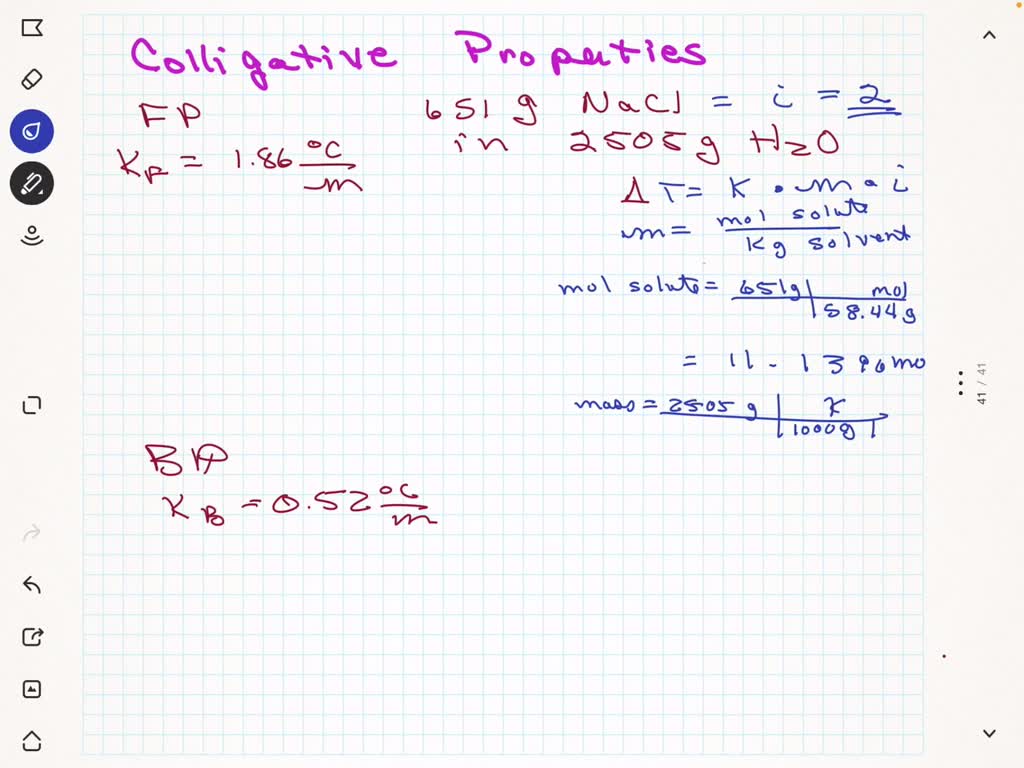 Colligative Properties
FP
KF = 1.86 °C/m
651 g NaCl = i = 2
in 2505g H2O
Δ T = K • m • i
m = mol solute / Kg solvent
mol solute = 651g | mol / 58.44g
= 11.1396 mo
mass = 2505 g | K / 1000g
BP
KB = 0.52 °C/m
41 / 41